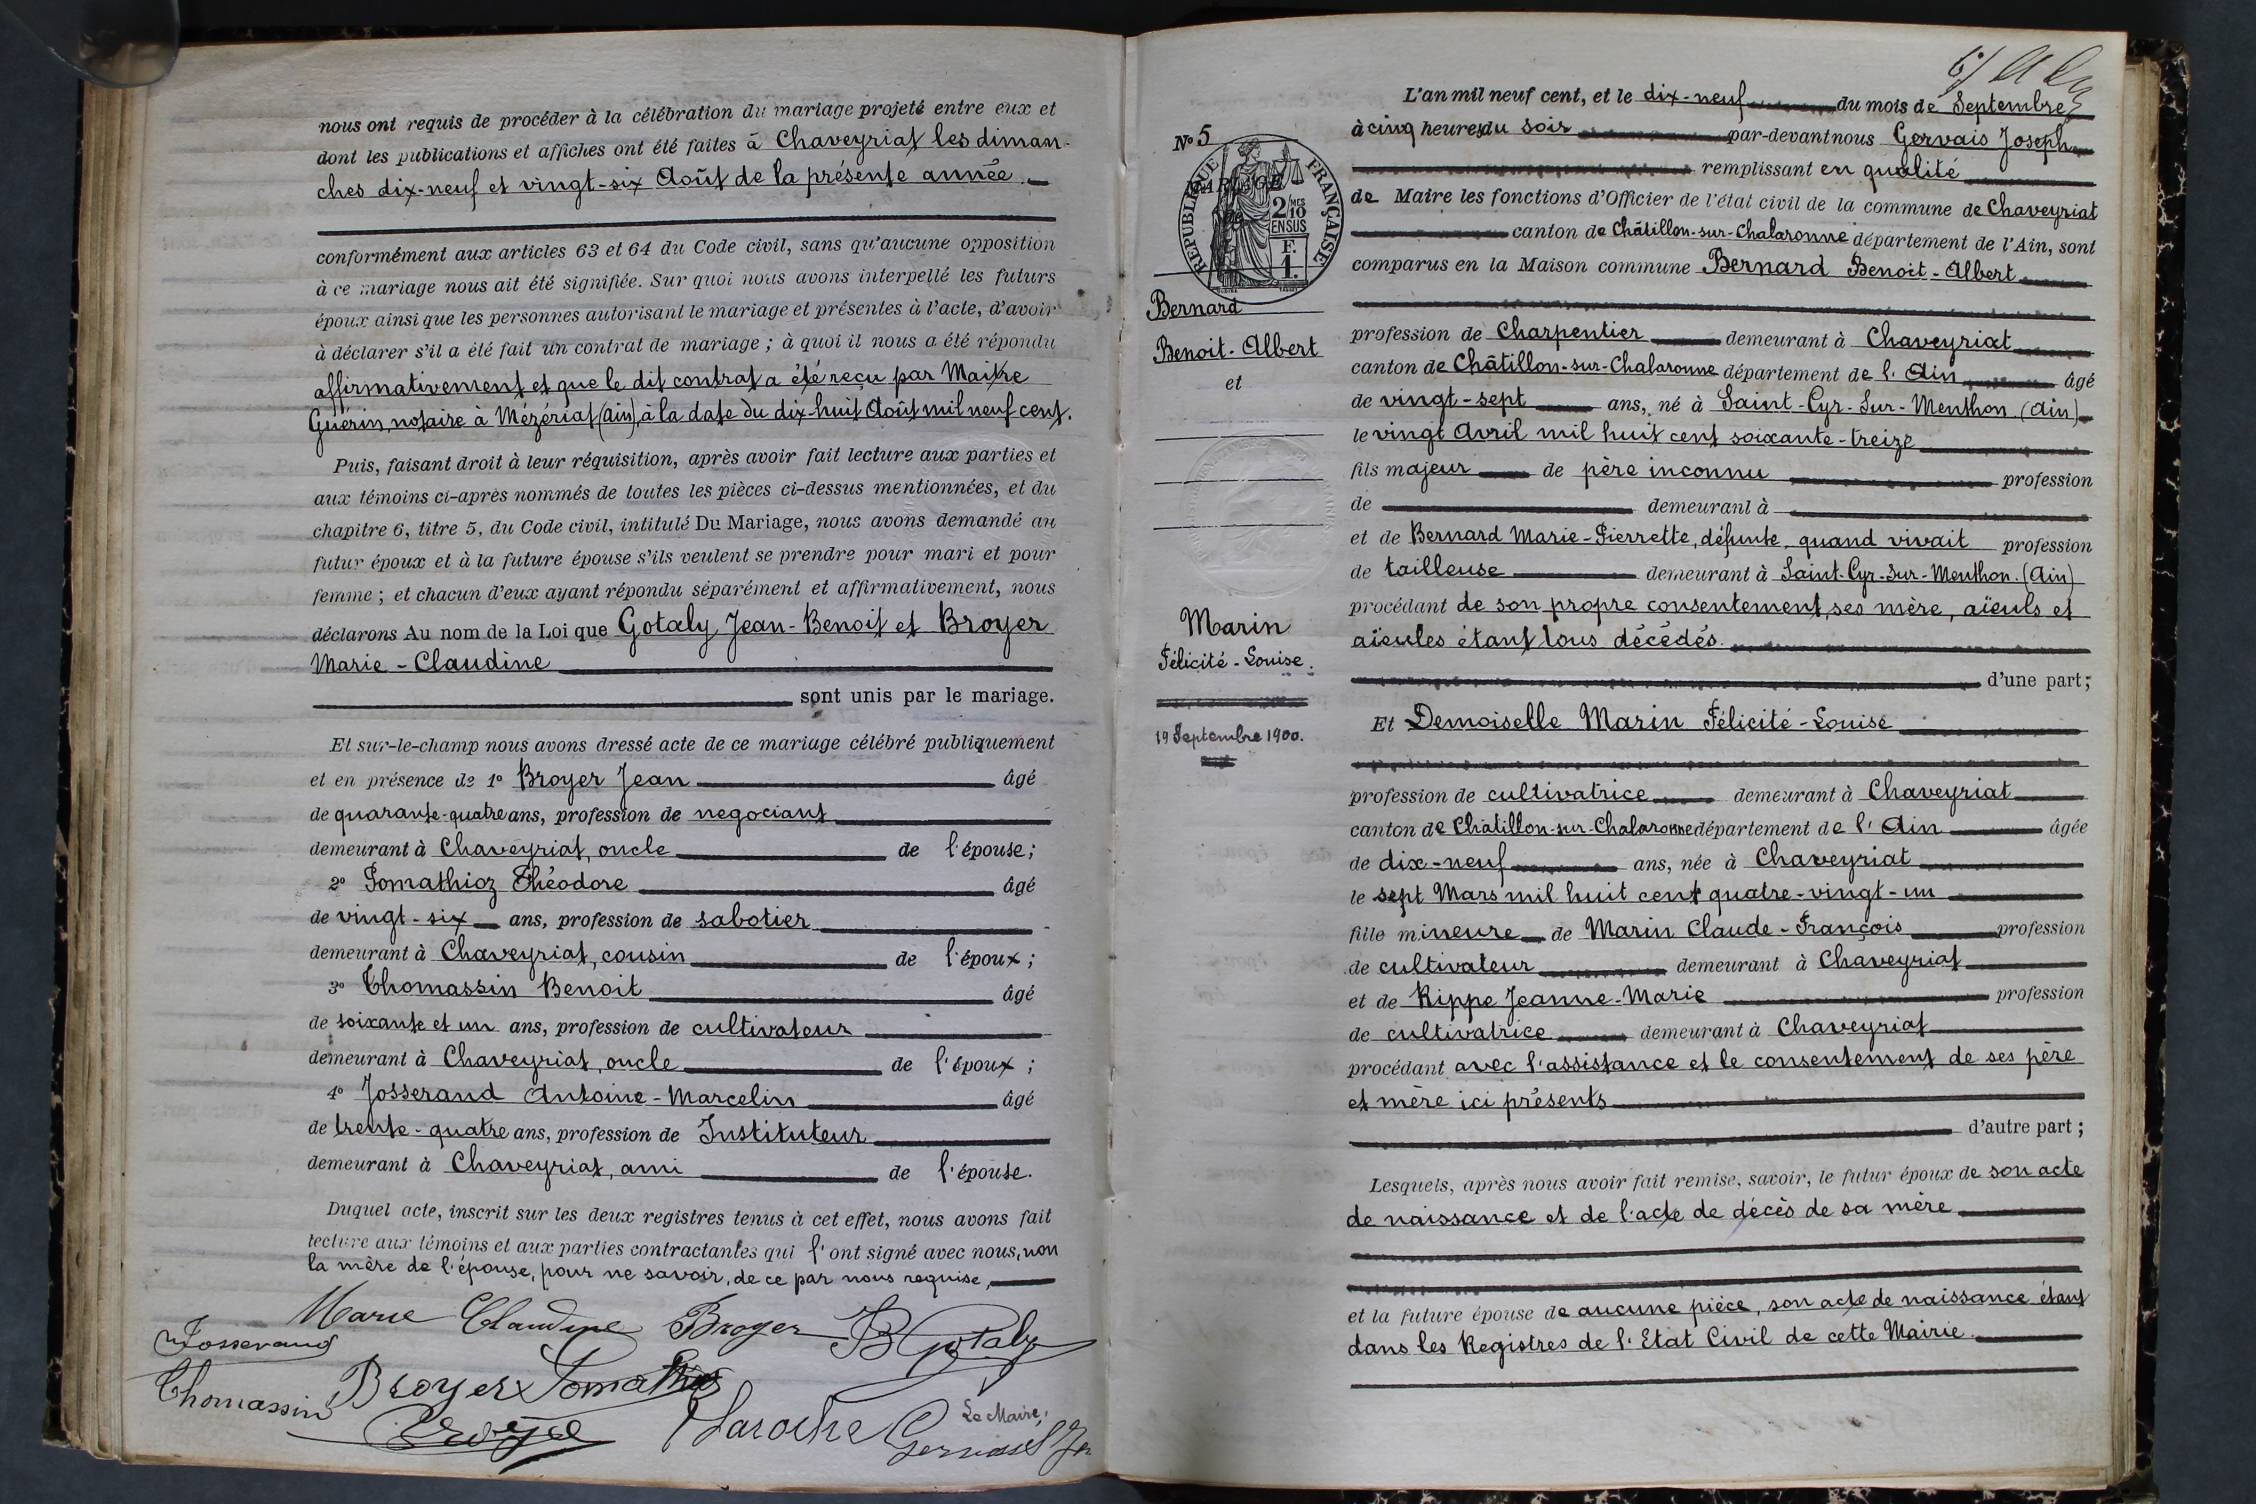 nous ont requis de procéder à la célébration du mariage projeté entre eux et
dont les publications et affiches ont été faites à Chaveyriat les diman-
ches dix-neuf et vingt-six Août de la présente année.
conformément aux articles 63 et 64 du Code civil, sans qu'aucune opposition
à ce mariage nous ait été signifiée. Sur quoi nous avons interpellé les futurs
époux ainsi que les personnes autorisant le mariage et présentes à l'acte, d'avoir
à déclarer s'il a été fait un contrat de mariage ; à quoi il nous a été répondu
affirmativement et que le dit contrat a été reçu par Maitre
Guérin, notaire à Mézériat (Ain), à la date du dix-huit Août mil neuf cent.
Puis, faisant droit à leur réquisition, après avoir fait lecture aux parties et
aux témoins ci-après nommés de toutes les pièces ci-dessus mentionnées, et du
chapitre 6, titre 5, du Code civil, intitulé Du Mariage, nous avons demandé au
futur époux et à la future épouse s'ils veulent se prendre pour mari et pour
femme ; et chacun d'eux ayant répondu séparément et affirmativement, nous
déclarons Au nom de la Loi que Gotaly Jean-Benoit et Broyer
Marie-Claudine
sont unis par le mariage.
Et sur-le-champ nous avons dressé acte de ce mariage célébré publiquement
et en présence de 1º Broyer Jean âgé
de quarante-quatre ans, profession de negociant
demeurant à Chaveyriat, oncle de l'épouse ;
2º Pomathioz Théodore âgé
de vingt-six ans, profession de sabotier
demeurant à Chaveyriat, cousin de l'époux ;
3º Thomassin Benoit âgé
de soixante et un ans, profession de cultivateur
demeurant à Chaveyriat, oncle de l'époux ;
4º Josserand Antoine-Marcelin âgé
de trente-quatre ans, profession de Instituteur
demeurant à Chaveyriat, ami de l'épouse.
Duquel acte, inscrit sur les deux registres tenus à cet effet, nous avons fait
lecture aux témoins et aux parties contractantes qui l'ont signé avec nous, non
la mère de l'épouse, pour ne savoir, de ce par nous requise,
Marie Claudine Broyer JB Gotaly
Josserand
Thomassin Broyer
Laroche Le Maire,
Gervais J
Nº 5
MARIAGE
DE
RÉPUBLIQUE FRANÇAISE
2/10 MES
EN SUS
F.
1.
Bernard
Benoit-Albert
et
Marin
Félicité-Louise.
19 Septembre 1900.
L'an mil neuf cent, et le dix-neuf du mois de Septembre
à cinq heures du soir par-devant nous Gervais Joseph
remplissant en qualité
de Maire les fonctions d'Officier de l'état civil de la commune de Chaveyriat
canton de Châtillon-sur-Chalaronne département de l'Ain, sont
comparus en la Maison commune Bernard Benoit-Albert
profession de Charpentier demeurant à Chaveyriat
canton de Châtillon-sur-Chalaronne département de l'Ain âgé
de vingt-sept ans, né à Saint-Cyr-Sur-Menthon (Ain)
le vingt Avril mil huit cent soixante-treize
fils majeur de père inconnu profession
de demeurant à
et de Bernard Marie-Pierrette, défunte, quand vivait profession
de tailleuse demeurant à Saint-Cyr-Sur-Menthon. (Ain)
procédant de son propre consentement, ses mère, aïeuls et
aïeules étant tous décédés.
d'une part ;
Et Demoiselle Marin Félicité-Louise
profession de cultivatrice demeurant à Chaveyriat
canton de Châtillon-sur-Chalaronne département de l'Ain âgée
de dix-neuf ans, née à Chaveyriat
le sept Mars mil huit cent quatre-vingt-un
fille mineure de Marin Claude-François profession
de cultivateur demeurant à Chaveyriat
et de Rippe Jeanne-Marie profession
de cultivatrice demeurant à Chaveyriat
procédant avec l'assistance et le consentement de ses père
et mère ici présents
d'autre part ;
Lesquels, après nous avoir fait remise, savoir, le futur époux de son acte
de naissance et de l'acte de décès de sa mère
et la future épouse de aucune pièce, son acte de naissance étant
dans les Registres de l'Etat Civil de cette Mairie.